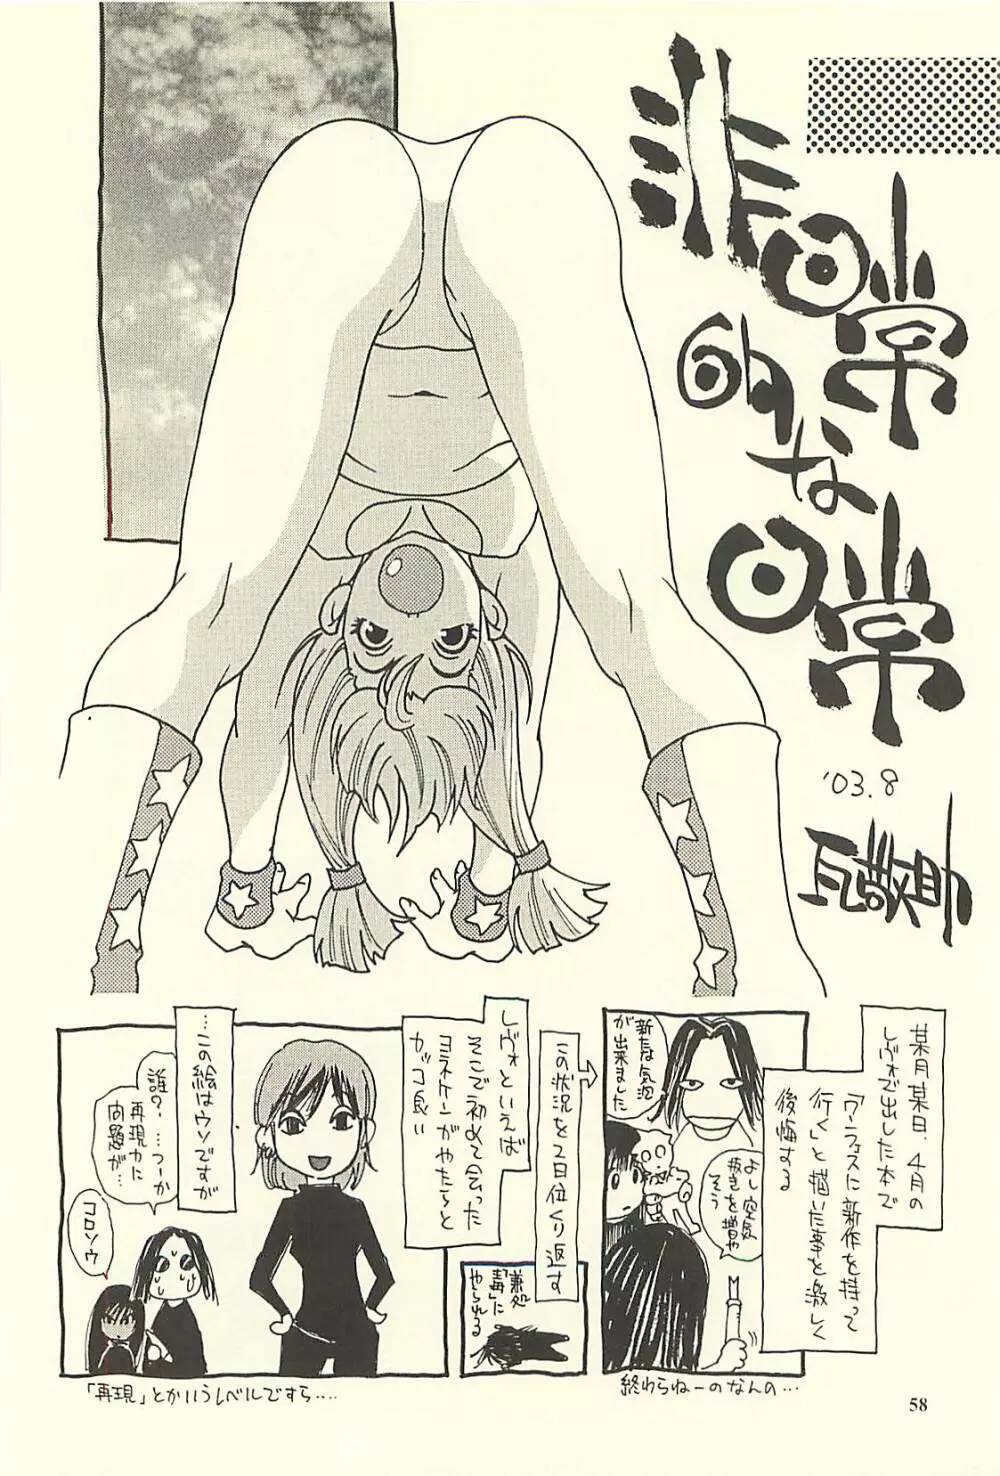 非日常
的な
日常
'03.8
瓦敬助
某月某日、4月の
レヴォで出した本で
「ワンフェスに新作を持って
行く」と描いた事を激しく
後悔する
新たな気泡
が出来ました
よし空気
抜きを増や
そう
終わらねーのなんの…
この状況を2日位くり返す
兼処
「毒」に
やられる
レヴォといえば
そこで初めて会った
ヨネケンがやたらと
カッコ良い
…この絵はウソですが
誰?…つーか
再現力に
問題が…
コロソウ
「再現」とかいうレベルですら….
58